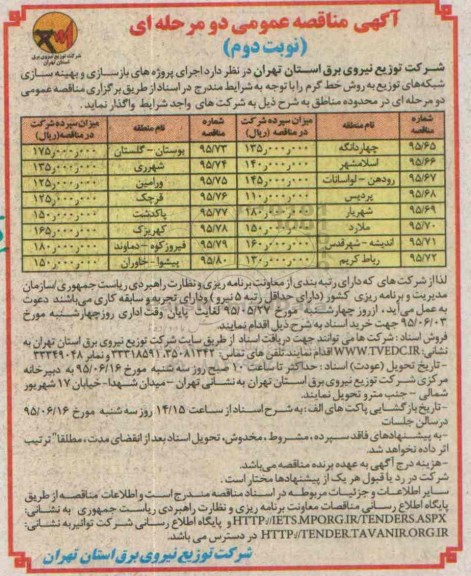 آگهی مناقصه عمومی دو مرحله ای
(نوبت دوم)
شرکت توزیع نیروی برق
استان تهران
شرکت توزیع نیروی برق استان تهران در نظر دارد اجرای پروژه های بازسازی و بهینه سازی
شبکه‌های توزیع به روش خط گرم را با توجه به شرایط مندرج در اسناد از طریق برگزاری مناقصه عمومی
دو مرحله ای در محدوده مناطق به شرح ذیل به شرکت های واجد شرایط واگذار نماید.
شماره مناقصه نام منطقه میزان سپرده شرکت در مناقصه (ریال) شماره مناقصه نام منطقه میزان سپرده شرکت در مناقصه (ریال)
۹۵/۶۵ چهاردانگه ۱۳۵٫۰۰۰٫۰۰۰ ۹۵/۷۳ بوستان - گلستان ۱۷۵٫۰۰۰٫۰۰۰
۹۵/۶۶ اسلامشهر ۱۴۰٫۰۰۰٫۰۰۰ ۹۵/۷۴ شهرری ۱۳۵٫۰۰۰٫۰۰۰
۹۵/۶۷ رودهن - لواسانات ۱۴۵٫۰۰۰٫۰۰۰ ۹۵/۷۵ ورامین ۱۲۵٫۰۰۰٫۰۰۰
۹۵/۶۸ پردیس ۱۱۰٫۰۰۰٫۰۰۰ ۹۵/۷۶ قرچک ۱۲۵٫۰۰۰٫۰۰۰
۹۵/۶۹ شهریار ۱۸۰٫۰۰۰٫۰۰۰ ۹۵/۷۷ پاکدشت ۱۵۰٫۰۰۰٫۰۰۰
۹۵/۷۰ ملارد ۱۵۰٫۰۰۰٫۰۰۰ ۹۵/۷۸ کهریزک ۱۶۵٫۰۰۰٫۰۰۰
۹۵/۷۱ اندیشه - شهرقدس ۱۶۰٫۰۰۰٫۰۰۰ ۹۵/۷۹ فیروزکوه - دماوند ۱۸۰٫۰۰۰٫۰۰۰
۹۵/۷۲ رباط کریم ۱۲۰٫۰۰۰٫۰۰۰ ۹۵/۸۰ پیشوا - خاوران ۱۵۰٫۰۰۰٫۰۰۰
لذا از شرکت های که دارای رتبه بندی از معاونت برنامه ریزی و نظارت راهبردی ریاست جمهوری (سازمان
مدیریت و برنامه ریزی کشور (دارای حداقل رتبه ۵ نیرو) و دارای تجربه و سابقه کاری می‌باشند دعوت
به عمل می‌آید، از روز چهارشنبه مورخ ۹۵/۰۵/۲۷ لغایت پایان وقت اداری روز چهارشنبه مورخ
۹۵/۰۶/۰۳ جهت خرید اسناد به شرح ذیل اقدام نمایند.
فروش اسناد: شرکت ها می توانند جهت دریافت اسناد از طریق سایت شرکت توزیع نیروی برق استان تهران به
نشانی: WWW.TVEDC.IR اقدام نمایند. تلفن های تماس: ۳۵۰۸۱۳۴۲، ۳۳۳۱۸۵۹۱ و نمابر ۳۳۳۴۹۰۴۸
- تاریخ تحویل (عودت) اسناد: حداکثر تا ساعت ۱۰ صبح روز سه شنبه مورخ ۹۵/۰۶/۱۶ به دبیرخانه
مرکزی شرکت توزیع نیروی برق استان تهران به نشانی تهران - میدان شهدا - خیابان ۱۷ شهریور
شمالی - جنب مترو تحویل نمایند.
- تاریخ بازگشایی پاکت های الف: به شرح اسناد از ساعت ۱۴/۱۵ روز سه شنبه مورخ ۹۵/۰۶/۱۶
در سالن جلسات
- به پیشنهادهای فاقد سپرده، مشروط، مخدوش، تحویل اسناد بعد از انقضای مدت، مطلقا" ترتیب
اثر داده نخواهد شد.
- هزینه درج آگهی به عهده برنده مناقصه می‌باشد.
شرکت در رد یا قبول هر یک از پیشنهادها مختار است.
سایر اطلاعات و جزئیات مربوطه در اسناد مناقصه مندرج است و اطلاعات مناقصه از طریق
پایگاه اطلاع رسانی مناقصات معاونت برنامه ریزی و نظارت راهبردی ریاست جمهوری به نشانی:
HTTP://IETS.MPORG.IR/TENDERS.ASPX و پایگاه اطلاع رسانی شرکت توانیر به نشانی:
HTTP://TENDER.TAVANIR.ORG.IR در دسترس می باشد.
شرکت توزیع نیروی برق استان تهران